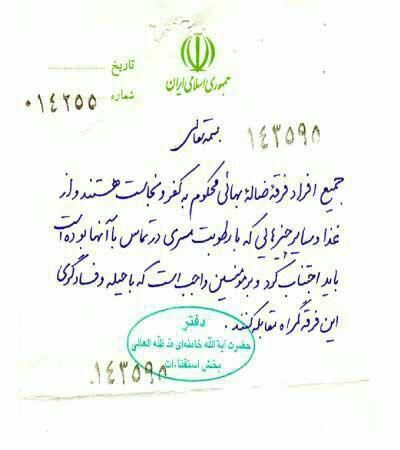 جمهوری اسلامی ایران
تاریخ ....................
شماره ۰۱۴۲۵۵
۱۴۳۵۹۸
بسمه تعالی
جمیع افراد فرقهٔ ضالهٔ بهائی محکوم به کفر و نجاست هستند و از
غذا و سایر چیزهایی که با رطوبت مسری در تماس با آنها بوده است
باید اجتناب کرد و بر مؤمنین واجب است که با حیله و فسادگری
این فرقه گمراه مقابله کنند.
دفتر
حضرت آیة الله خامنه‌ای مد ظله العالی
بخش استفتاءات
۱۴۳۵۹۸